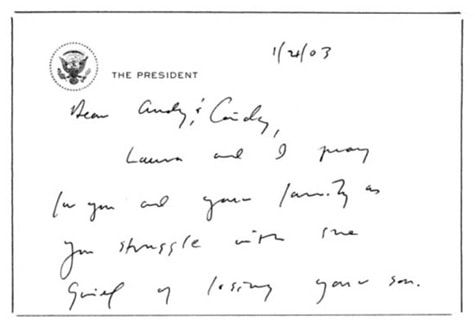 1/21/03
THE PRESIDENT
Dear Andy & Cindy,
Laura and I pray
for you and your family as
you struggle with the
grief of losing your son.